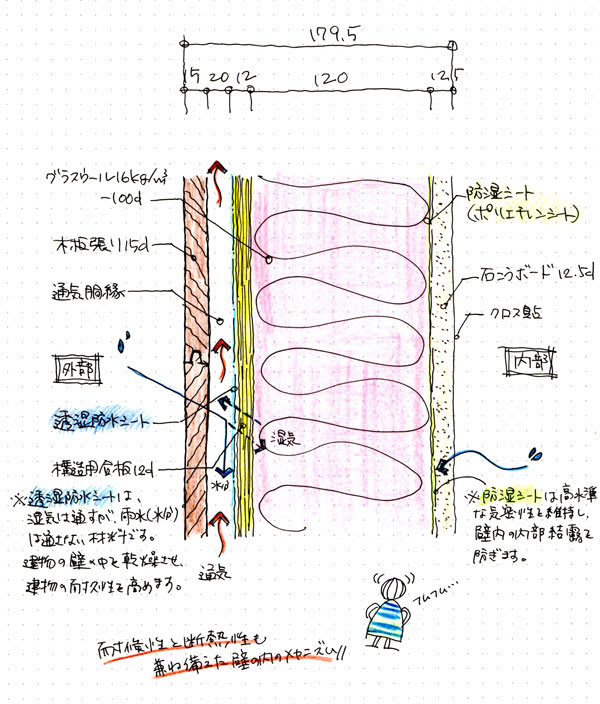 179.5
15 20 12 120 12.5
グラスウール16kg/m³
~100d
木板張り15d
通気胴縁
外部
透湿防水シート
構造用合板12d
※透湿防水シートは、
湿気は通すが、雨水(水分)
は通さない材料です。
建物の壁の中を乾燥させ、
建物の耐久性を高めます。
湿気
水分
通気
防湿シート
(ポリエチレンシート)
石こうボード12.5d
クロス貼
内部
※防湿シートは高水準
な気密性を維持し、
壁内の内部結露を
防ぎます。
フムフム…
耐候性と断熱性も
兼ね備えた壁の内のメカニズム!!